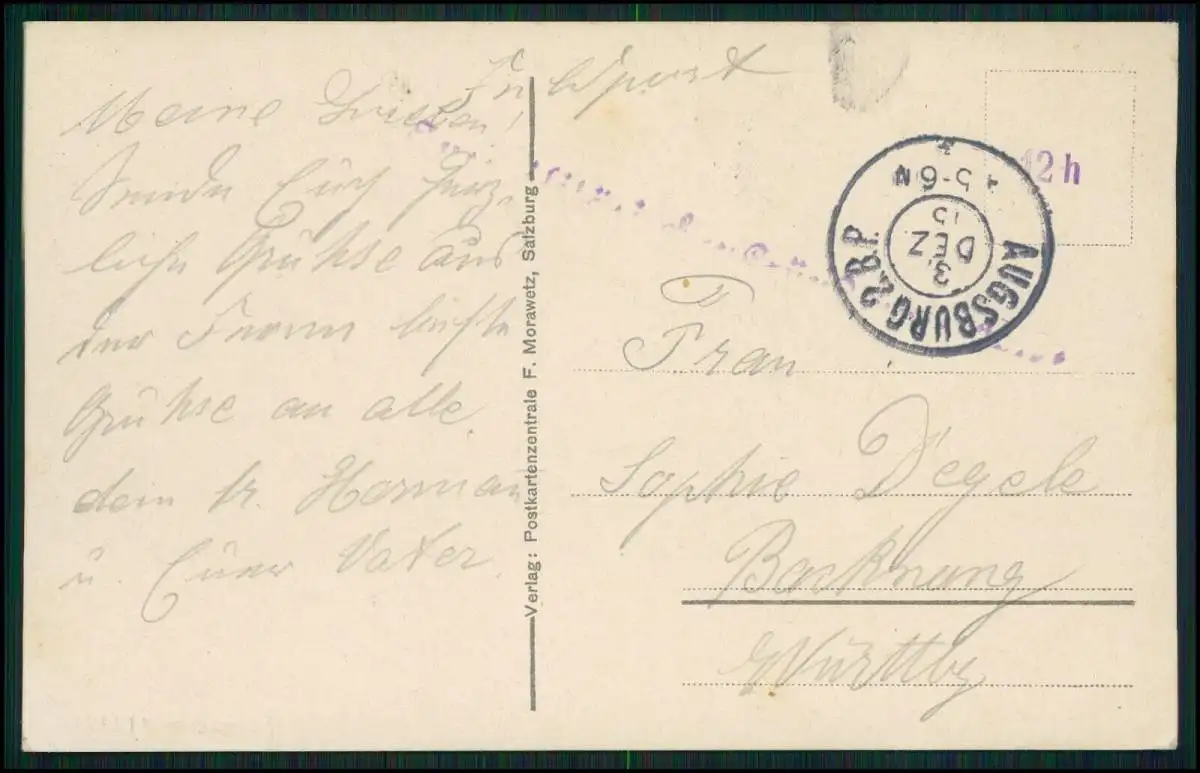 Feldpost
Meine Lieben!
Sende Euch herz-
liche Grühse aus
der Ferne beste
Grühse an alle
dem lb. Herman
u. Euer Vater
Verlag: Postkartenzentrale F. Morawetz, Salzburg
12h
AUGSBURG 2 B.P.
3
DEZ
15
5-6 N
Frau
Sophie Degele
Backnang
Württbg